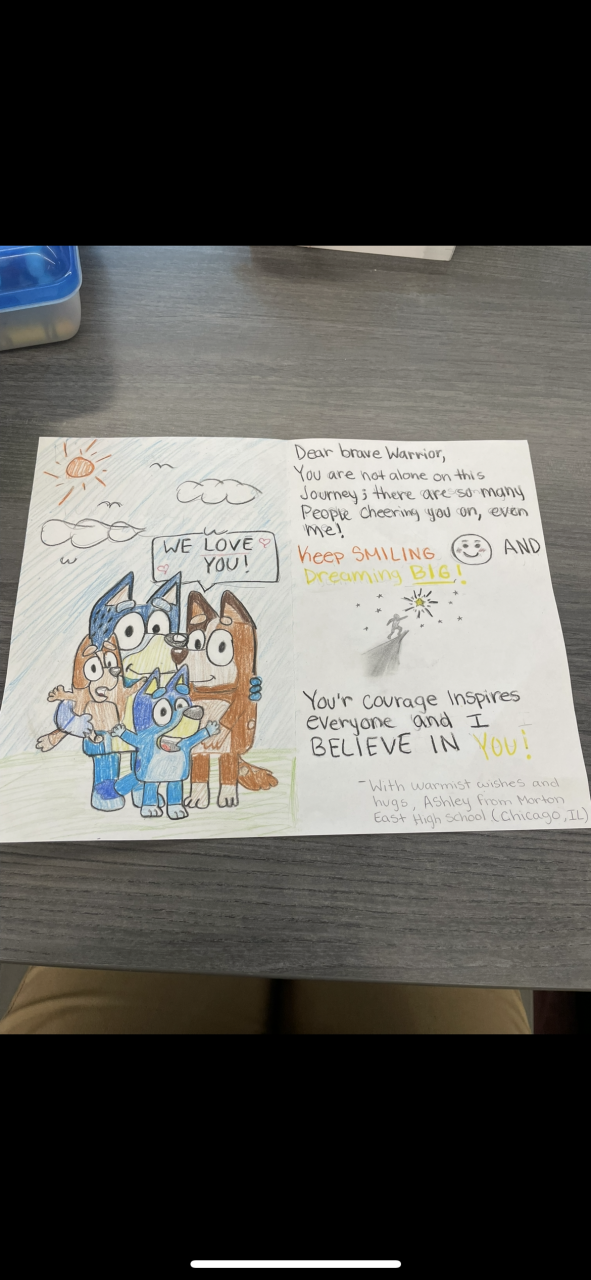 WE LOVE
YOU!
Dear brave Warrior,
You are not alone on this
Journey; there are so many
People cheering you on, even
me!
Keep SMILING AND
Dreaming BIG!
You'r Courage Inspires
everyone and I
BELIEVE IN YOU!
-With warmist wishes and
hugs, Ashley from Morton
East High school (Chicago, IL)